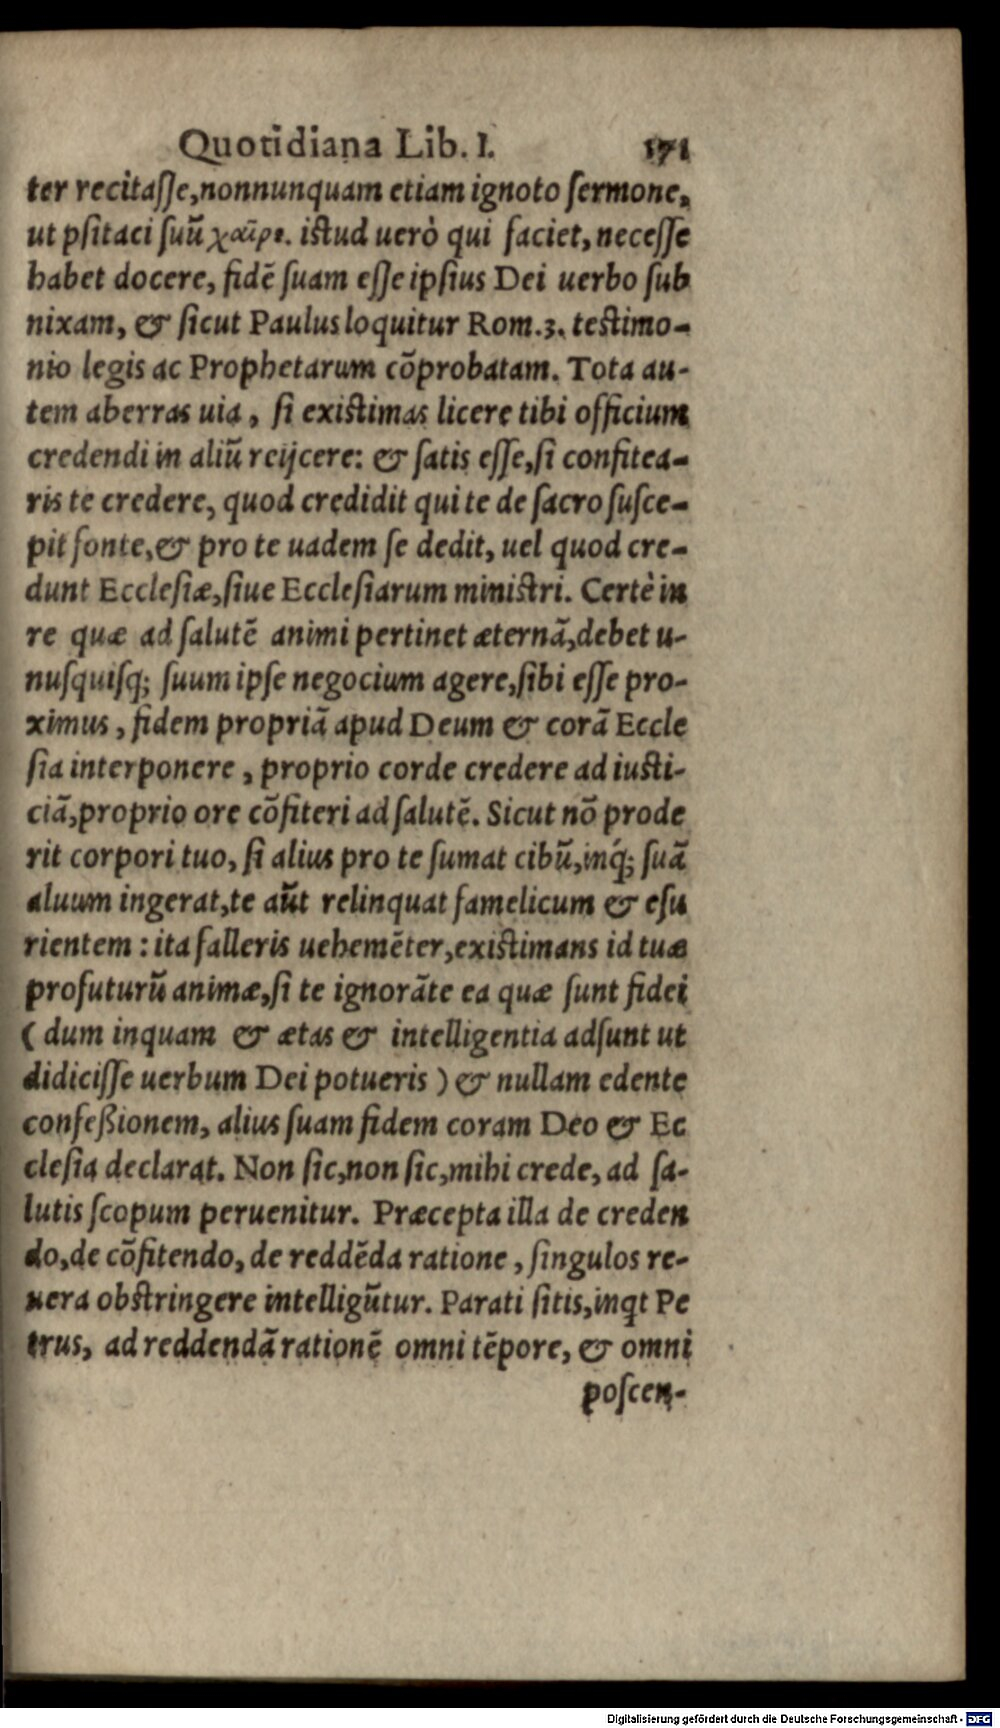 Quotidiana Lib. I. 171
ter recitaſſe, nonnunquam etiam ignoto ſermone,
ut pſitaci ſuũ χαῖρε. iſtud uerò qui faciet, neceſſe
habet docere, fidẽ ſuam eſſe ipſius Dei uerbo ſub
nixam, & ſicut Paulus loquitur Rom.3. teſtimo-
nio legis ac Prophetarum cõprobatam. Tota au-
tem aberras uia, ſi exiſtimas licere tibi officium
credendi in aliũ reijcere: & ſatis eſſe, ſi confitea-
ris te credere, quod credidit qui te de ſacro ſuſce-
pit fonte, & pro te uadem ſe dedit, uel quod cre-
dunt Eccleſiæ, ſiue Eccleſiarum miniſtri. Certè in
re quæ ad ſalutẽ animi pertinet æternã, debet u-
nuſquiſq; ſuum ipſe negocium agere, ſibi eſſe pro-
ximus, fidem propriã apud Deum & corã Eccle
ſia interponere, proprio corde credere ad iuſti-
ciã, proprio ore cõfiteri ad ſalutẽ. Sicut nõ prode
rit corpori tuo, ſi alius pro te ſumat cibũ, inq́; ſuã
aluum ingerat, te aũt relinquat famelicum & eſu
rientem: ita falleris uehemẽter, exiſtimans id tuæ
profuturũ animæ, ſi te ignorãte ea quæ ſunt fidei
(dum inquam & ætas & intelligentia adſunt ut
didiciſſe uerbum Dei potueris) & nullam edente
confeßionem, alius ſuam fidem coram Deo & Ec
cleſia declarat. Non ſic, non ſic, mihi crede, ad ſa-
lutis ſcopum peruenitur. Præcepta illa de creden
do, de cõfitendo, de reddẽda ratione, ſingulos re-
uera obſtringere intelligũtur. Parati ſitis, inqt Pe
trus, ad reddendã rationẽ omni tẽpore, & omni
poſcen-
Digitalisierung gefördert durch die Deutsche Forschungsgemeinschaft - DFG